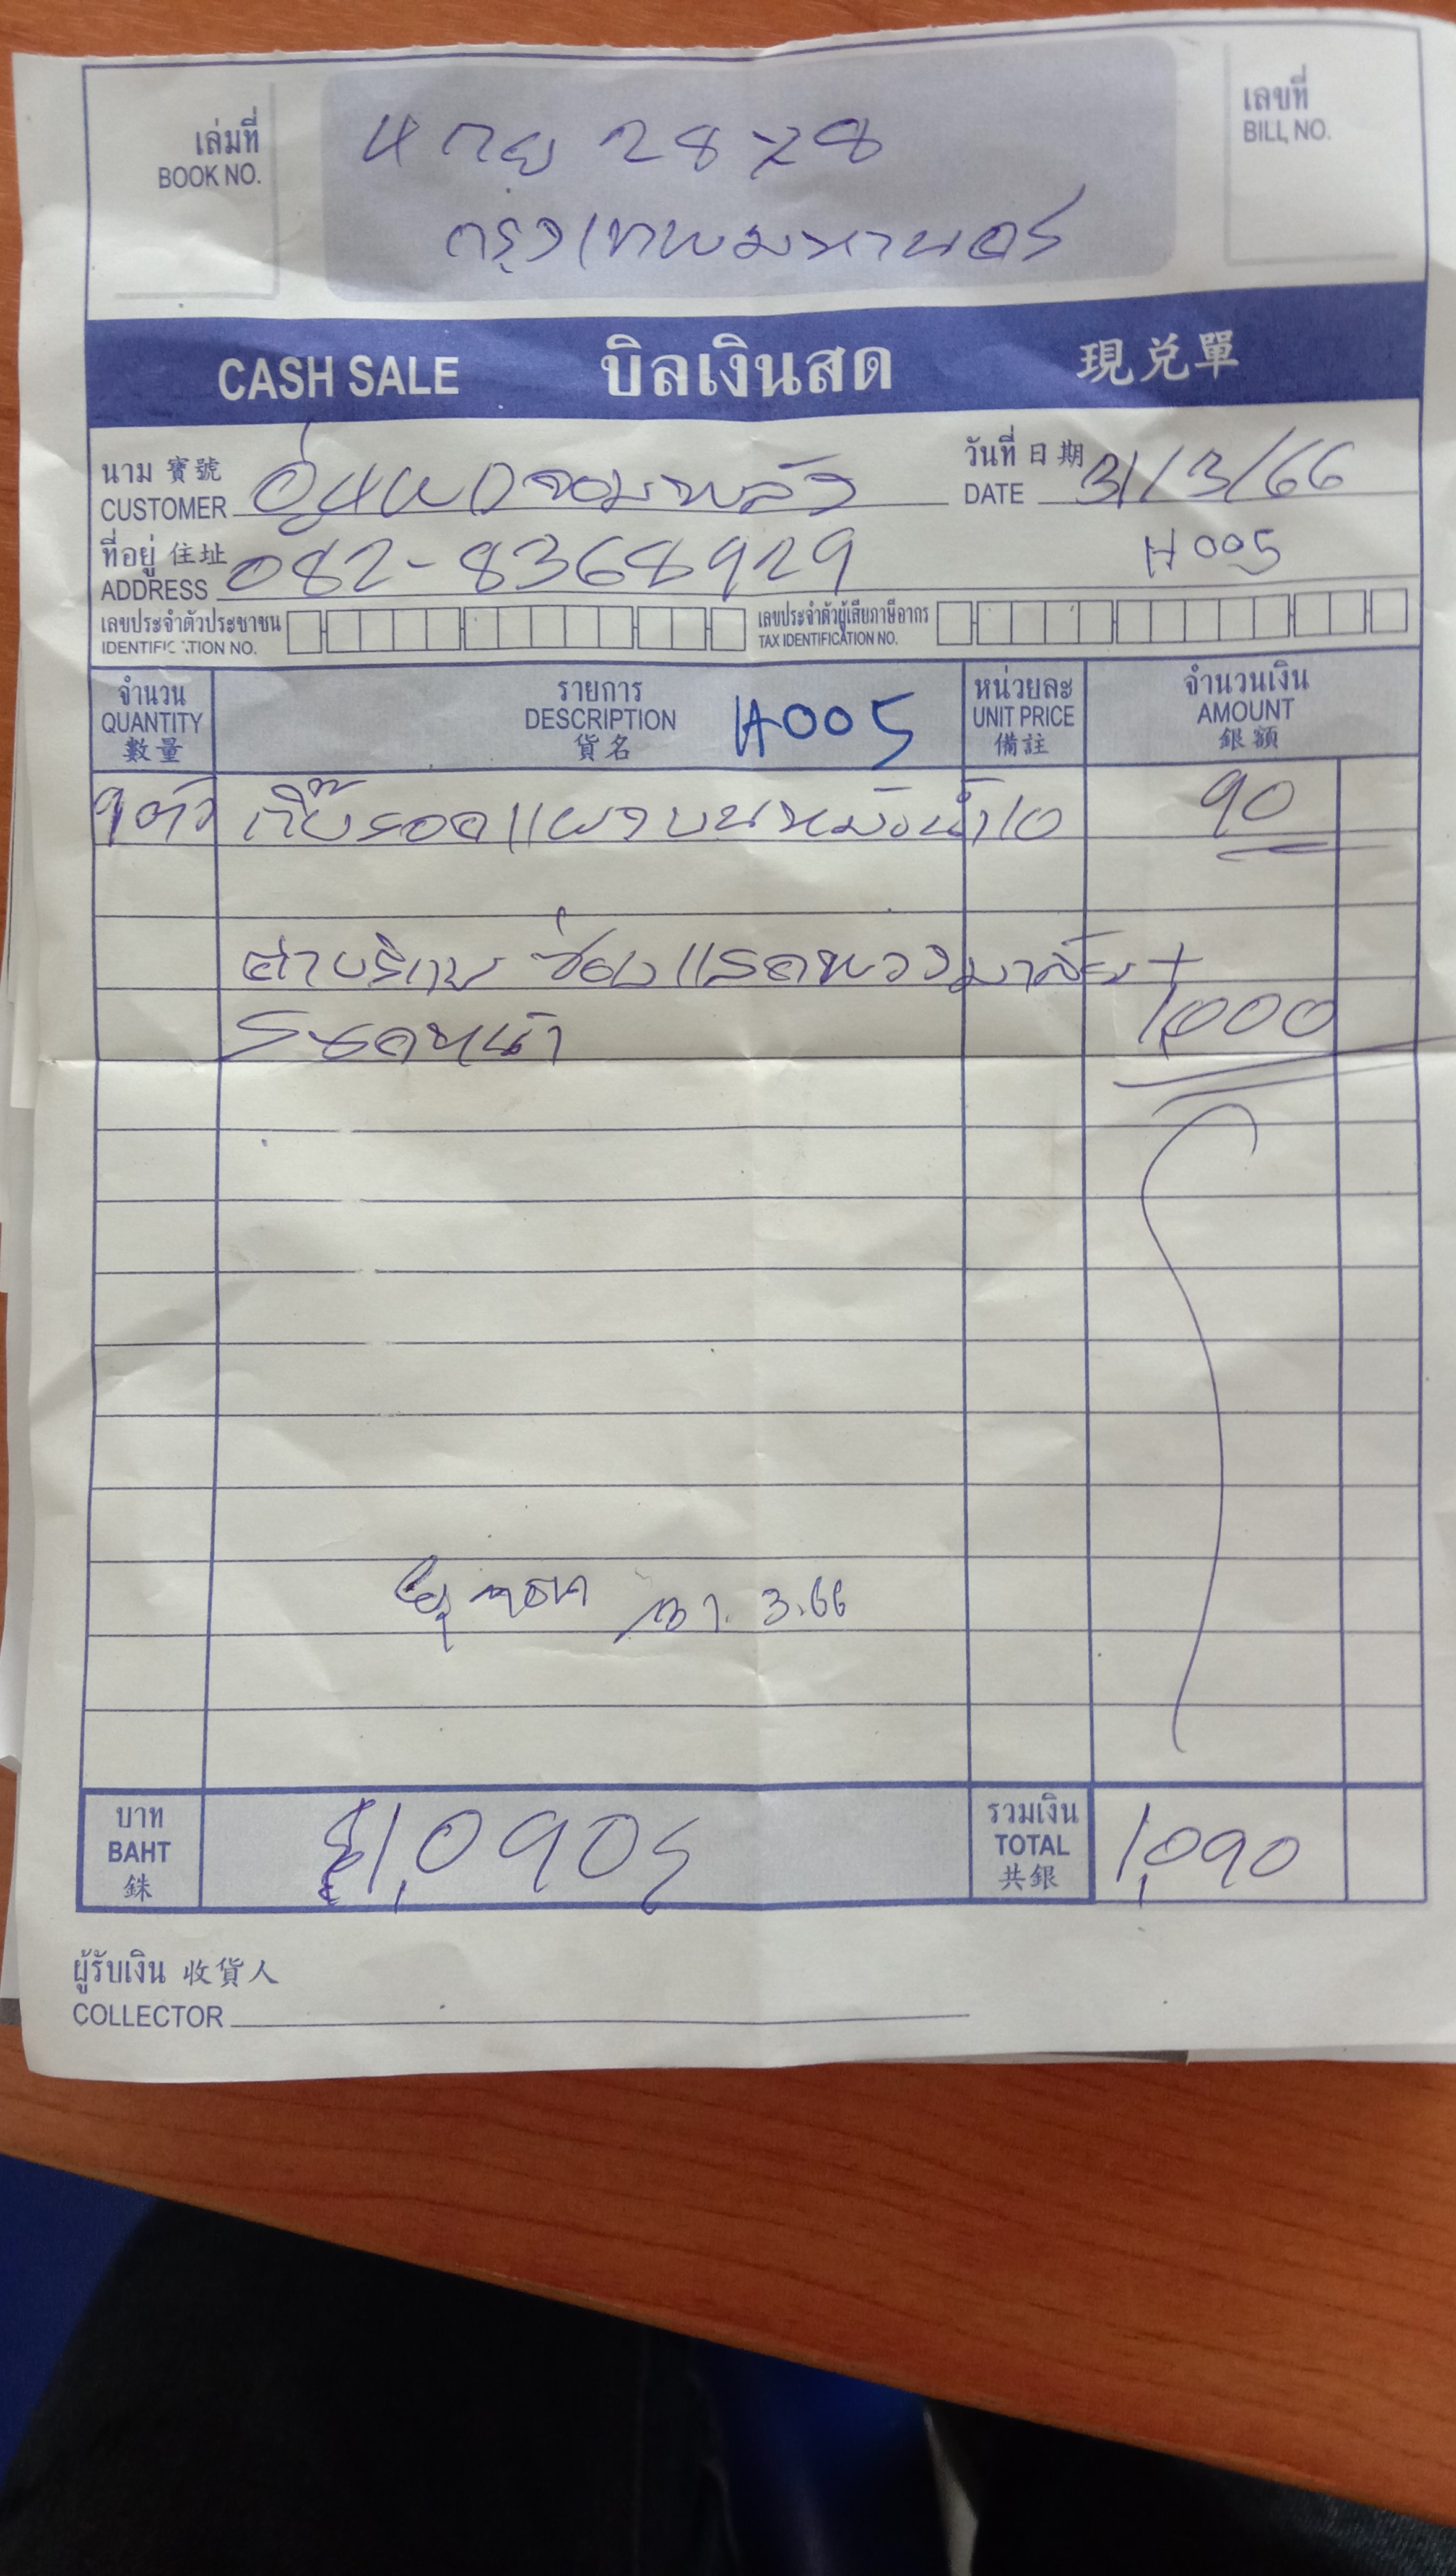 เล่มที่
BOOK NO.
4 กษ 2878
กรุงเทพมหานคร
เลขที่
BILL NO.
CASH SALE บิลเงินสด 現兑單
นาม 寶號
CUSTOMER
วันที่ 日期
DATE 31/3/66
ที่อยู่ 住址
ADDRESS 082-8368929
H005
เลขประจำตัวประชาชน
IDENTIFICATION NO.
เลขประจำตัวผู้เสียภาษีอากร
TAX IDENTIFICATION NO.
จำนวน
QUANTITY
數量
รายการ
DESCRIPTION
貨名
H005
หน่วยละ
UNIT PRICE
備註
จำนวนเงิน
AMOUNT
銀額
9 ตัว กิ๊บรอดแผงบนหม้อน้ำ 10 90
ค่าบริการ ซ่อมแร็คพวงมาลัย +
โช๊คหน้า 1,000
31.3.66
บาท
BAHT
銖
1,090
รวมเงิน
TOTAL
共銀
1,090
ผู้รับเงิน 收貨人
COLLECTOR